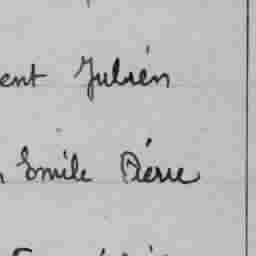 ent Julien
Emile Pierre